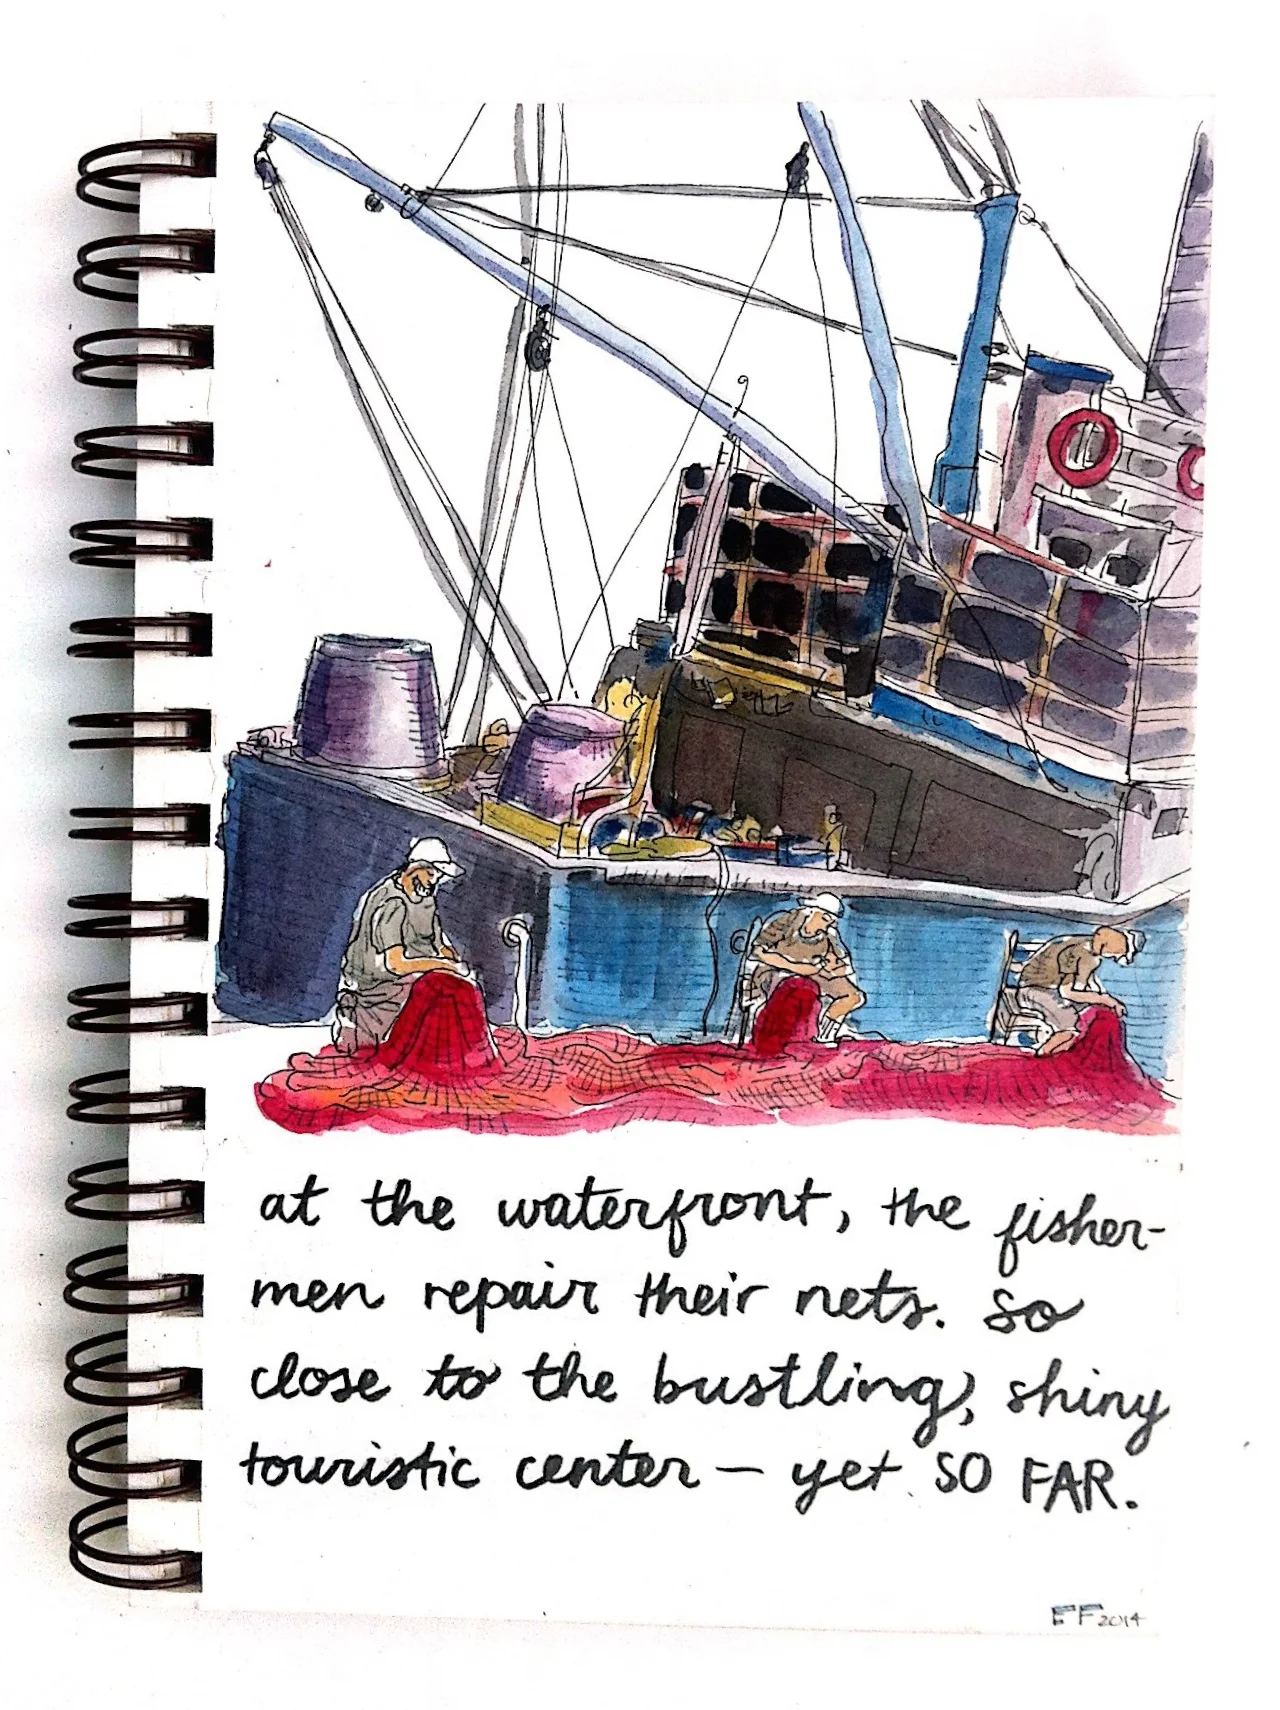 at the waterfront, the fisher-
men repair their nets. So
close to the bustling, shiny
touristic center — yet SO FAR.
EF 2014